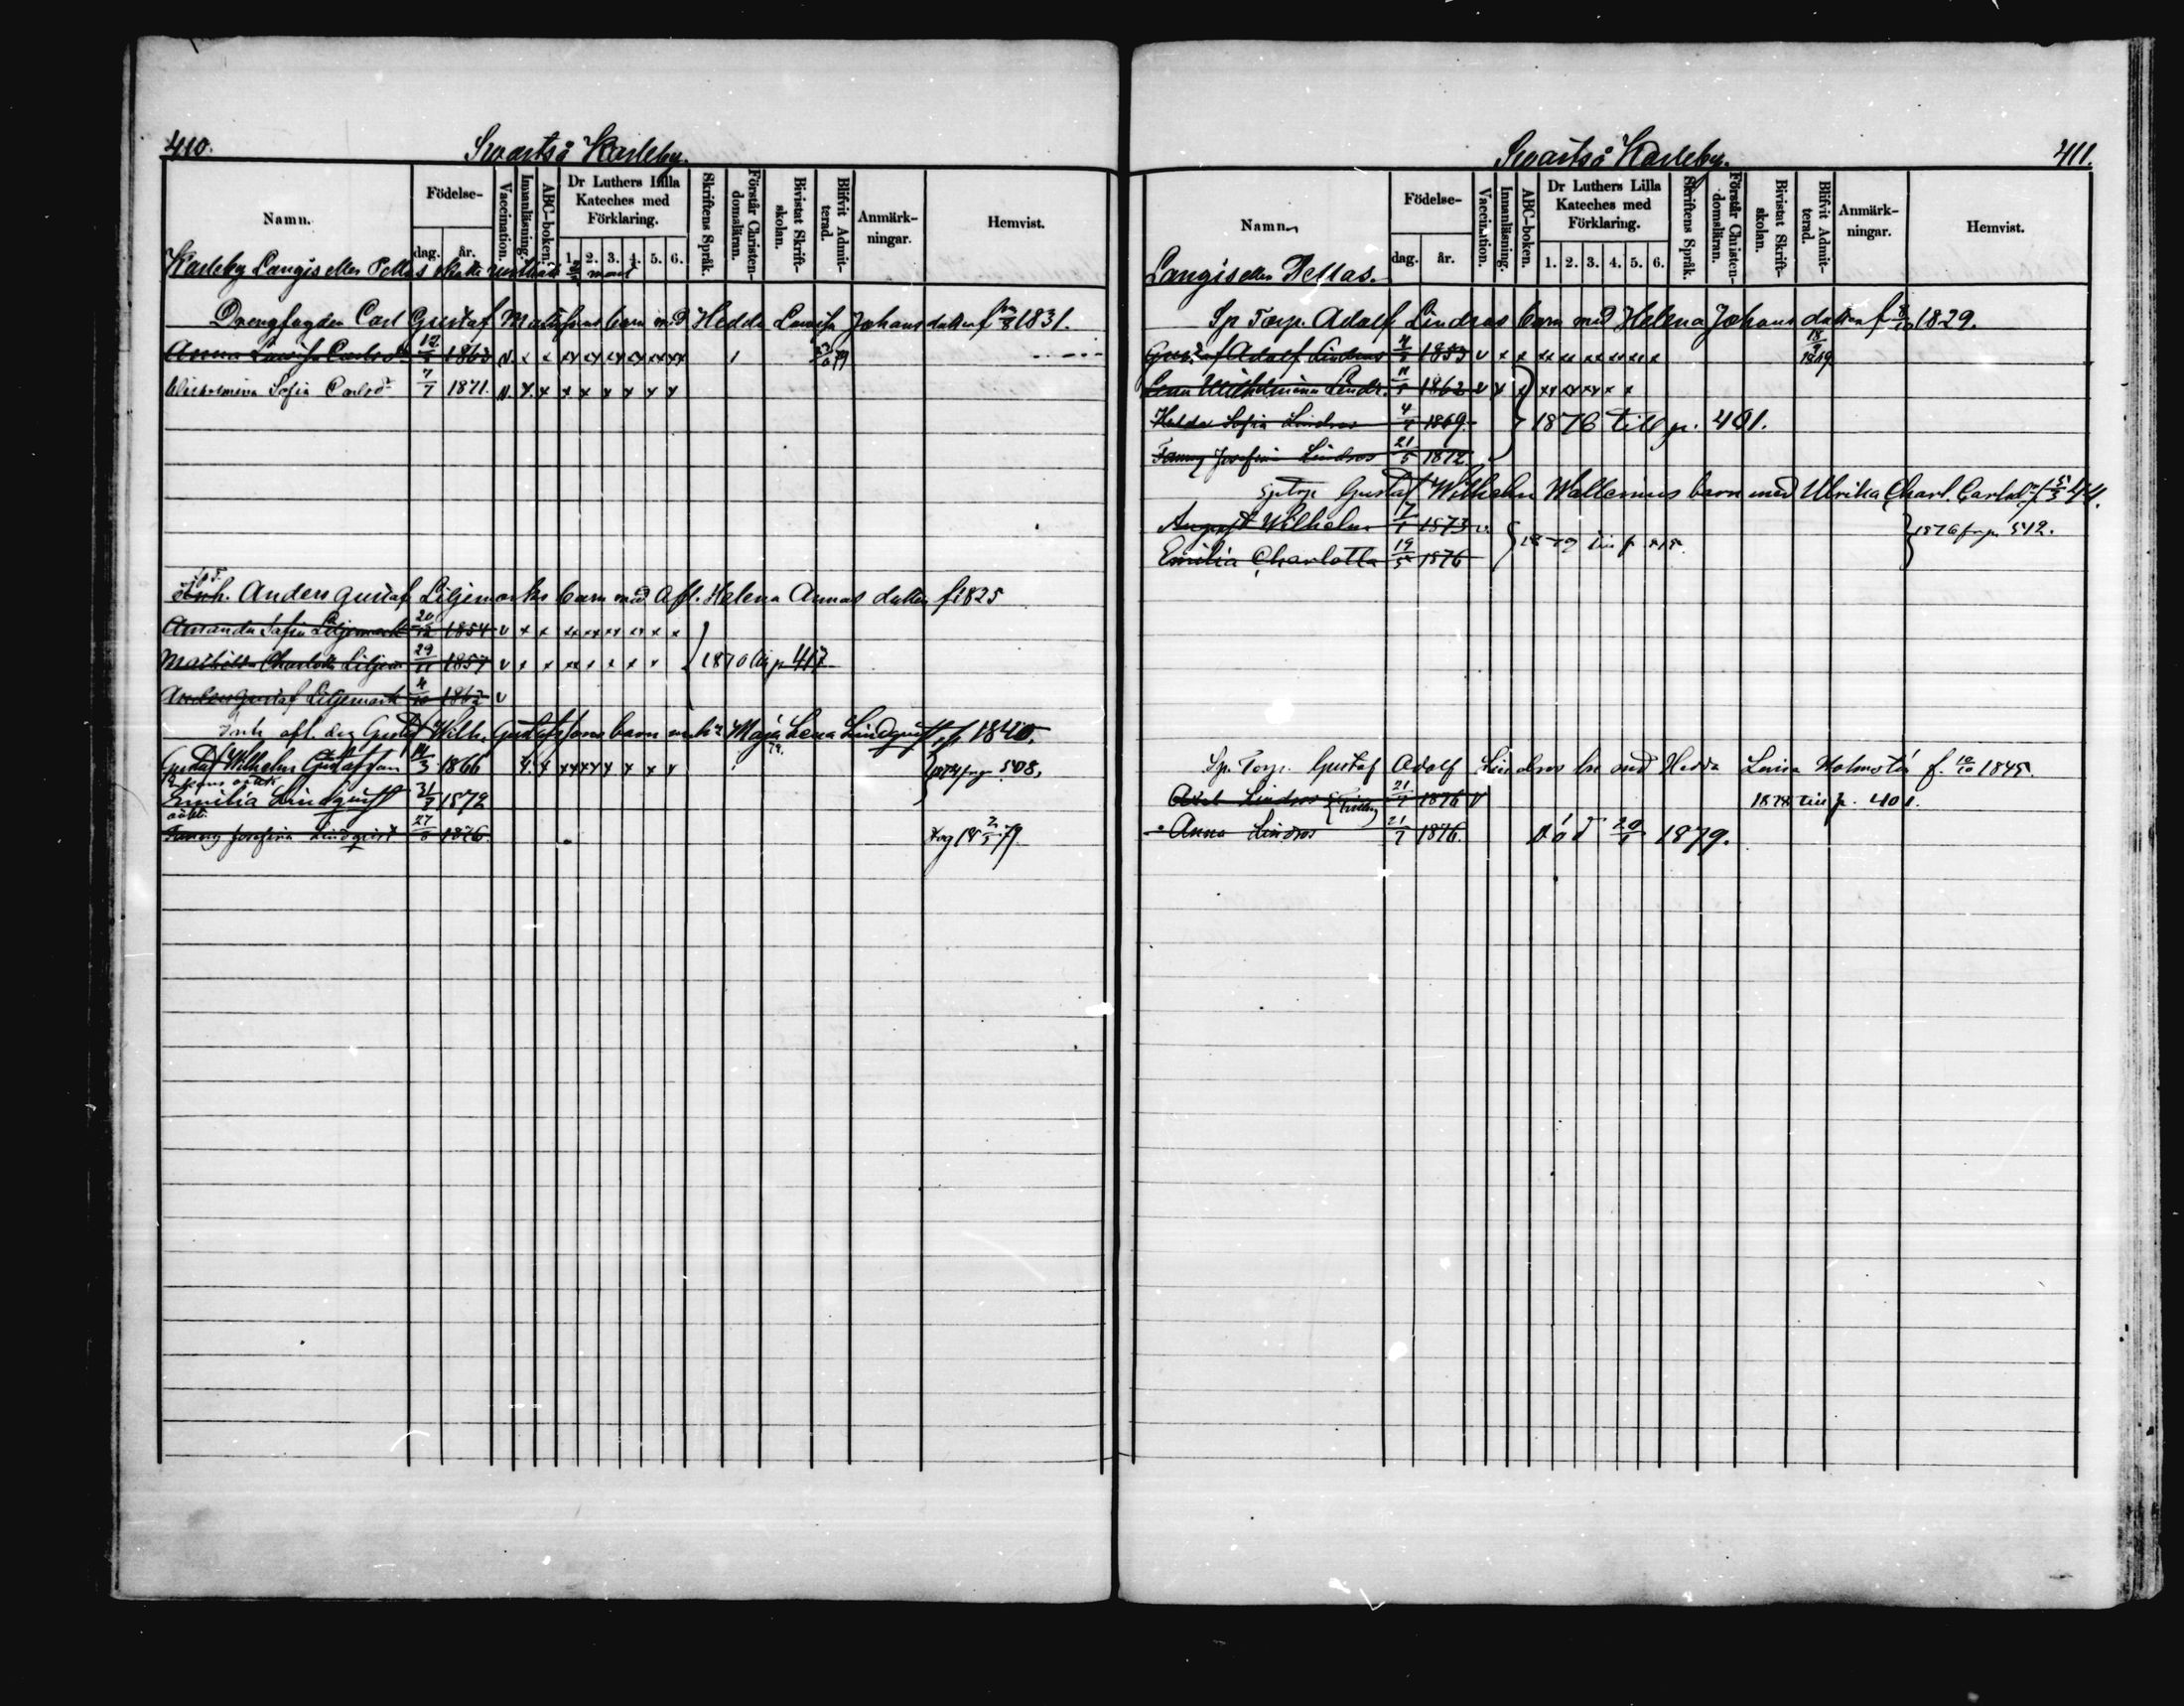 410.
Svartså Karleby.
Namn.
Födelse-
dag. år.
Vaccination.
Innanläsning.
ABC-boken.
Dr Luthers Lilla Kateches med Förklaring.
1. 2. 3. 4. 5. 6.
Skriftens Språk.
Förstår Christen-domsläran.
Bivistat Skrift-skolan.
Blifvit Admit-terad.
Anmärk-ningar.
Hemvist.
Karleby Langis eller Pellas
Drengfogden Carl Gustaf Matsfons barn med Hedda Lovisa Johans dotter f 1831.
Anna Lovisa 1863 v x x
Wilhelmina Sofia Carlsd 7/7 1871. v. x. x x x x x x x
Anders Gustaf Liljemarks barn med Afl. Helena Annas dotter f 1825
Amanda Sofia Liljemark 20/12 1854 v x x
Mathilda Charlotta Liljem 29/11 1857 v x x 1870 till p 417
Anders Gustaf Liljemark 4/10 1862 v
Inh. afl. drg Gustaf Wilh. Gustafsons barn m. h. Maja Lena Lindqvist f. 1840.
Gustaf Wilhelm Gustafson 14/3 1866 508.
Emilia Lindqvist 31/7 1872
oäkta
Fanny Josefina Lindqvist 27/8 1876.
411.
Svartså Karleby.
Namn.
Födelse-
dag. år.
Vaccination.
Innanläsning.
ABC-boken.
Dr Luthers Lilla Kateches med Förklaring.
1. 2. 3. 4. 5. 6.
Skriftens Språk.
Förstår Christen-domsläran.
Bivistat Skrift-skolan.
Blifvit Admit-terad.
Anmärk-ningar.
Hemvist.
Langis eller Pellas.
Sp Torp. Adolf Lindros barn med Helena Johans dotter f 8/10 1829.
Gustaf Adolf Lindros 1853 v x x
Lena Wilhelmina Lindr. 1862 v x x
Hulda Sofia Lindros 1869 1876 till p. 401.
Fanny Josefina Lindros 21/5 1872
Sptrp Gustaf Wilhelm Wallenius barn med Ulrika Charl. Carlsd. f 44.
August Wilhelm 7/1 1873 v 1876 fr. p. 512.
Emilia Charlotta 19/5 1876
Sp. Torp. Gustaf Adolf Lindros br med Hedda Lovisa Holmstén f. 10/10 1845.
Axel Lindros 21/7 1876 v 1878 till p. 401.
Anna Lindros 21/7 1876. Död 20/5 1879.